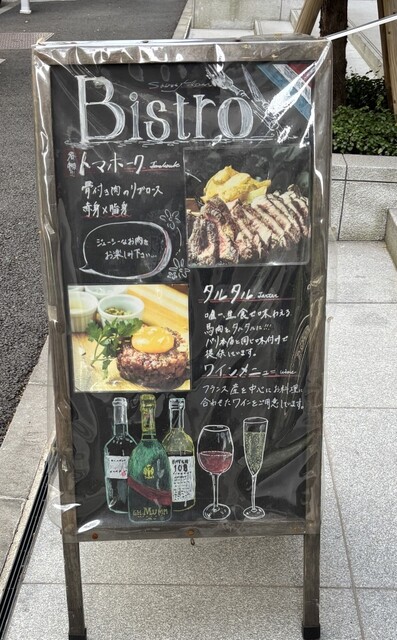 Bistro
トマホーク Tomahawk
骨付き肉のリブロース
赤身×脂身
ジューシーなお肉を
お楽しみ下さい
タルタル Tartar
唯一、生食で味わえる
馬肉をタルタルに!!!
パリ本店と同じ味付けで
提供しています。
ワインメニュー wine
フランス産を中心にお料理に
合わせたワインをご用意しています。
108
MUMM